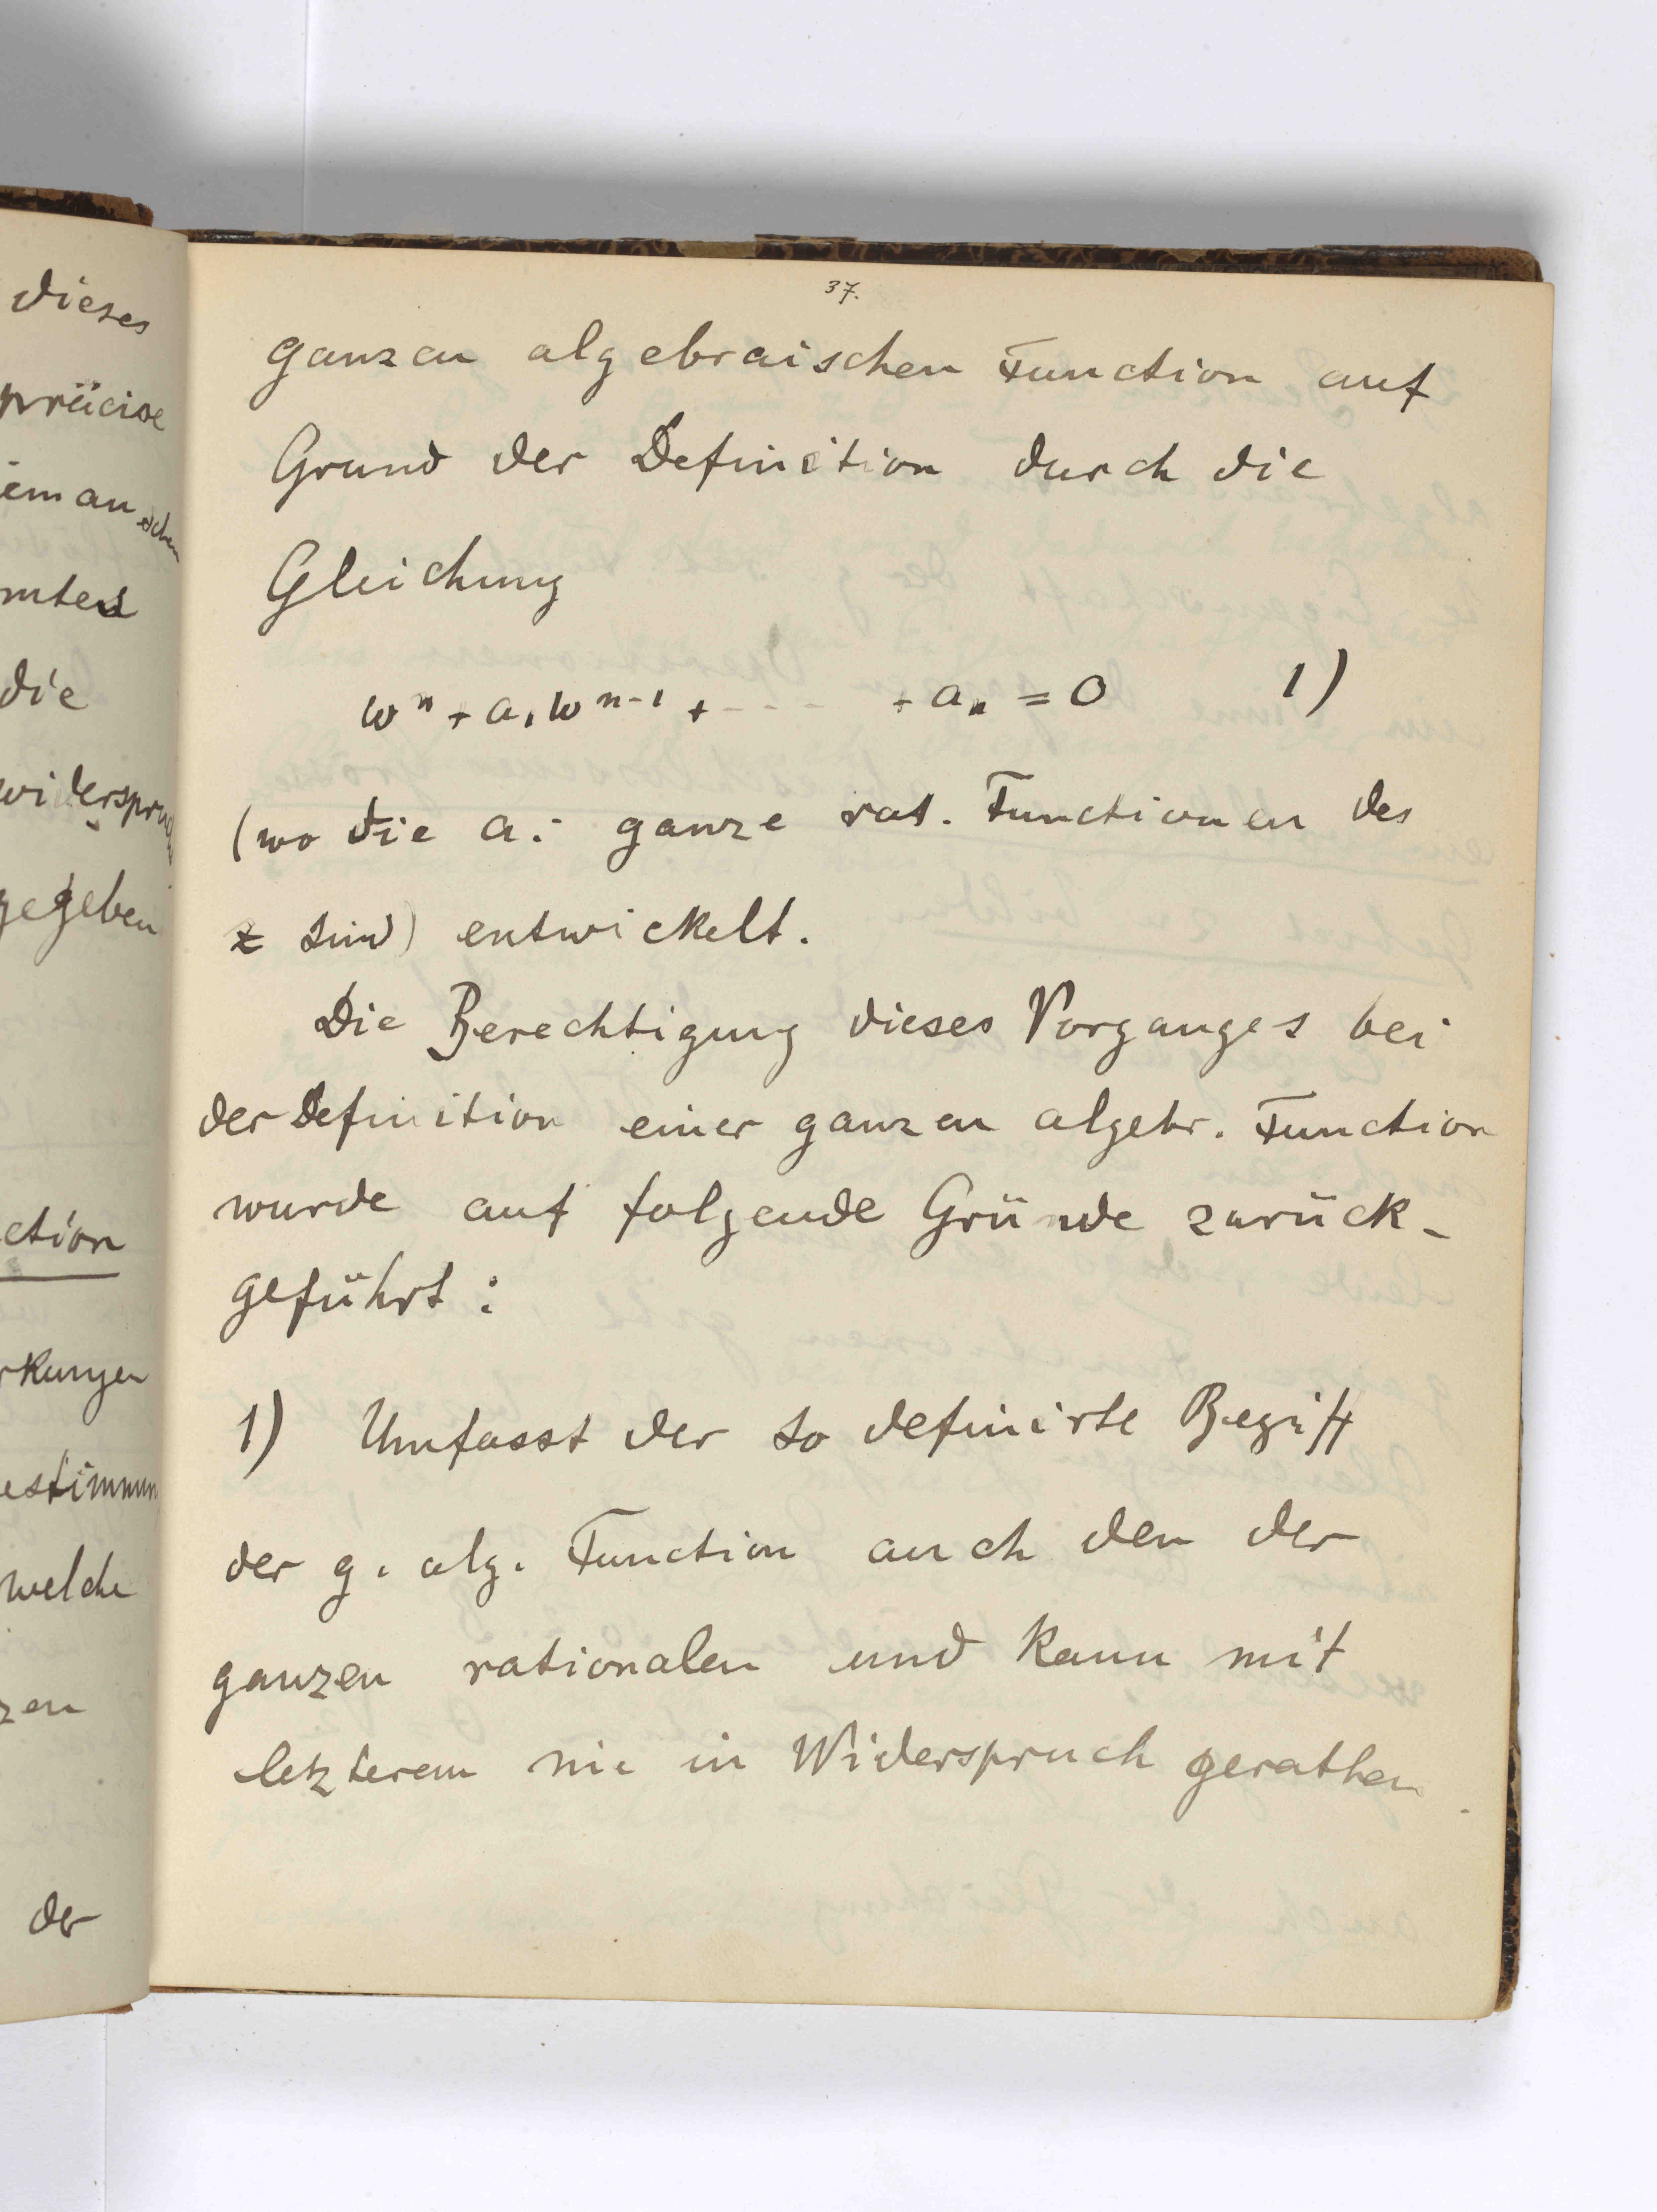 dieses
präcise
die
gegeben
ction
rkungen
estimmun
welche
zen
der
37.
ganzen algebraischen Function auf
Grund der Definition durch die
Gleichung
wⁿ + a₁wⁿ⁻¹ + - - - - + aₙ = 0 1)
(wo die aᵢ ganze rat. Functionen des
z sind) entwickelt.
Die Berechtigung dieses Vorganges bei
der Definition einer ganzen algebr. Function
wurde auf folgende Gründe zurück-
geführt:
1) Umfasst der so definirte Begriff
der g. alg. Function auch den der
ganzen rationalen und kann mit
letzterem nie in Widerspruch gerathen.